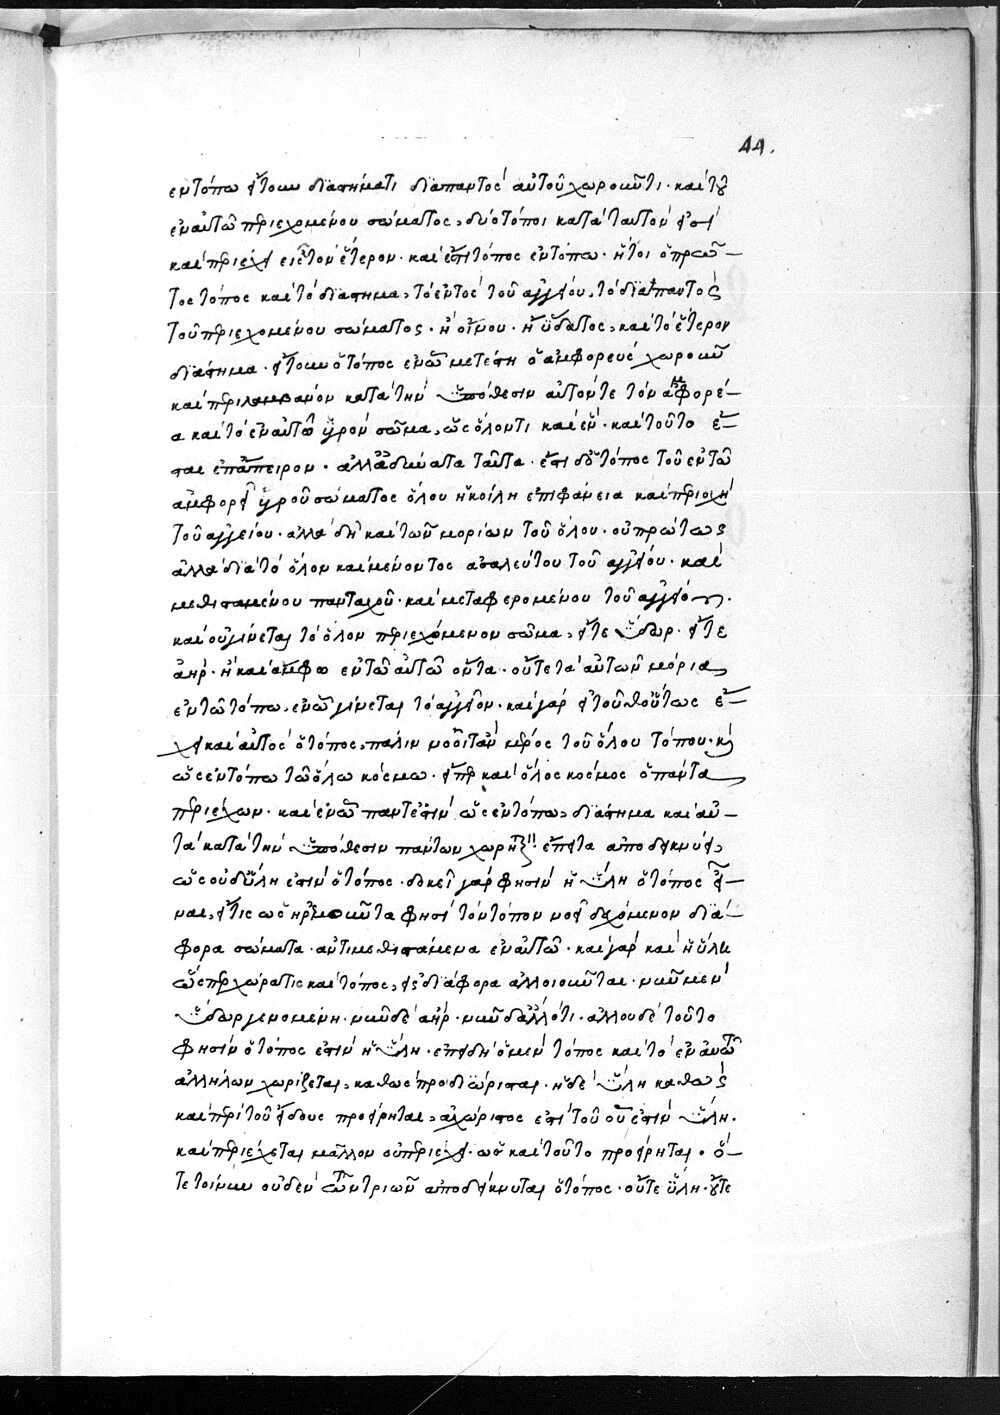 44.
ἐν τόπω εἴτουν διαστήματι διαπαντὸς αὐτοῦ χωροῦντι· καὶ τοῦ
ἐν αὐτῶ περιεχομένου σώματος, δύο τόποι κατὰ ταυτὸν εἰσὶ
καὶ περιέχει εἷς τὸν ἕτερον· καὶ ἔστι τόπος ἐν τόπω· ἤτοι ὁ πρῶ–
τος τόπος καὶ τὸ διάστημα, τὸ ἐντὸς τοῦ ἀγγείου, τὸ διαπαντὸς
τοῦ περιεχομένου σώματος· ἢ οἴνου· ἢ ὕδατος, καὶ τὸ ἕτερον
διάστημα· εἴτουν ὁ τόπος ἐν ὧ μετέστη ὁ ἀμφορεὺς χωροῦν
καὶ περιλαμβάνον κατὰ τὴν ὑπόθεσιν αὐτόν τε τὸν ἀμφορέ–
α καὶ τὸ ἐν αὐτῶ ὑγρὸν σῶμα, ὡς ὅλον τι καὶ ἕν· καὶ τοῦτο ἔ–
σται ἐπ' ἄπειρον· ἀλλ' ἀδύνατα ταῦτα· ἔστι δὲ τόπος τοῦ ἐν τῶ
ἀμφορεῖ ὑγροῦ σώματος ὅλου ἡ κοίλη ἐπιφάνεια καὶ περιοχὴ
τοῦ ἀγγείου· ἀλλὰ δὴ καὶ τῶν μορίων τοῦ ὅλου· οὐ πρώτως
ἀλλὰ διὰ τὸ ὅλον καὶ μένοντος ἀσαλεύτου τοῦ ἀγγείου· καὶ
μεθισταμένου πανταχοῦ· καὶ μεταφερομένου τοῦ ἀγγείου.
καὶ οὐ γίνεται τὸ ὅλον περιεχόμενον σῶμα, εἴτε ὕδωρ· εἴτε
ἀήρ· ἢ καὶ ἄμφω ἐν τῶ αὐτῶ ὄντα· οὔτε τὰ αὐτῶν μόρια
ἐν τῶ τόπω, ἐν ὧ γίνεται τὸ ἀγγεῖον· καὶ γὰρ εἰ τοῦθ' οὕτως ἔ–
χει καὶ αὐτὸς ὁ τόπος, πάλιν μέρος τοῦ ὅλου τόπου· καὶ
ὡς ἐν τόπω τῶ ὅλω κόσμω· εἴπερ καὶ ὅλος κόσμος ὁ πάντα
περιέχων· καὶ ἐν ὧ πάντ' ἐστὶν ὡς ἐν τόπω, διάστημα καὶ αὐ–
τὰ κατὰ τὴν ὑπόθεσιν πάντων· ἔπειτα ἀποδείκνυσι,
ὡς οὐδ' ὕλη ἐστὶν ὁ τόπος· δοκεῖ γὰρ φησὶν ἡ ὕλη ὁ τόπος εἶ–
ναι, εἴ τις ὡς ἠρεμοῦντα φησὶ τὸν τόπον νοεῖ δεχόμενον διά–
φορα σώματα· ἀντιμεθιστάμενα ἐν αὐτῶ· καὶ γὰρ καὶ ἡ ὕλη
ὥσπερ χώρα τις καὶ τόπος, εἰς διάφορα ἀλλοιοῦται· νῦν μὲν
ὕδωρ γενομένη· νῦν δὲ ἀήρ· νῦν δ' ἄλλό τι· ἀλλ' οὐδὲ τοῦτο
φησὶν ὁ τόπος ἐστὶν ἡ ὕλη· ἐπειδὴ ὁ μὲν τόπος καὶ τὸ ἐν αὐτῶ
ἀλλήλων χωρίζεται, καθὼς προδιώρισται· ἡ δὲ ὕλη καθὼς
καὶ περὶ τοῦ εἴδους προείρηται, ἀχώριστος ἐστὶ τοῦ οὗ ἐστὶν ὕλη.
καὶ περιέχεται μᾶλλον οὐ περιέχει· ὡς καὶ τοῦτο προείρηται· ὅ–
τε τοίνυν οὐδὲν τῶν τριῶν ἀποδείκνυται ὁ τόπος· οὔτε ὕλη· οὔτε